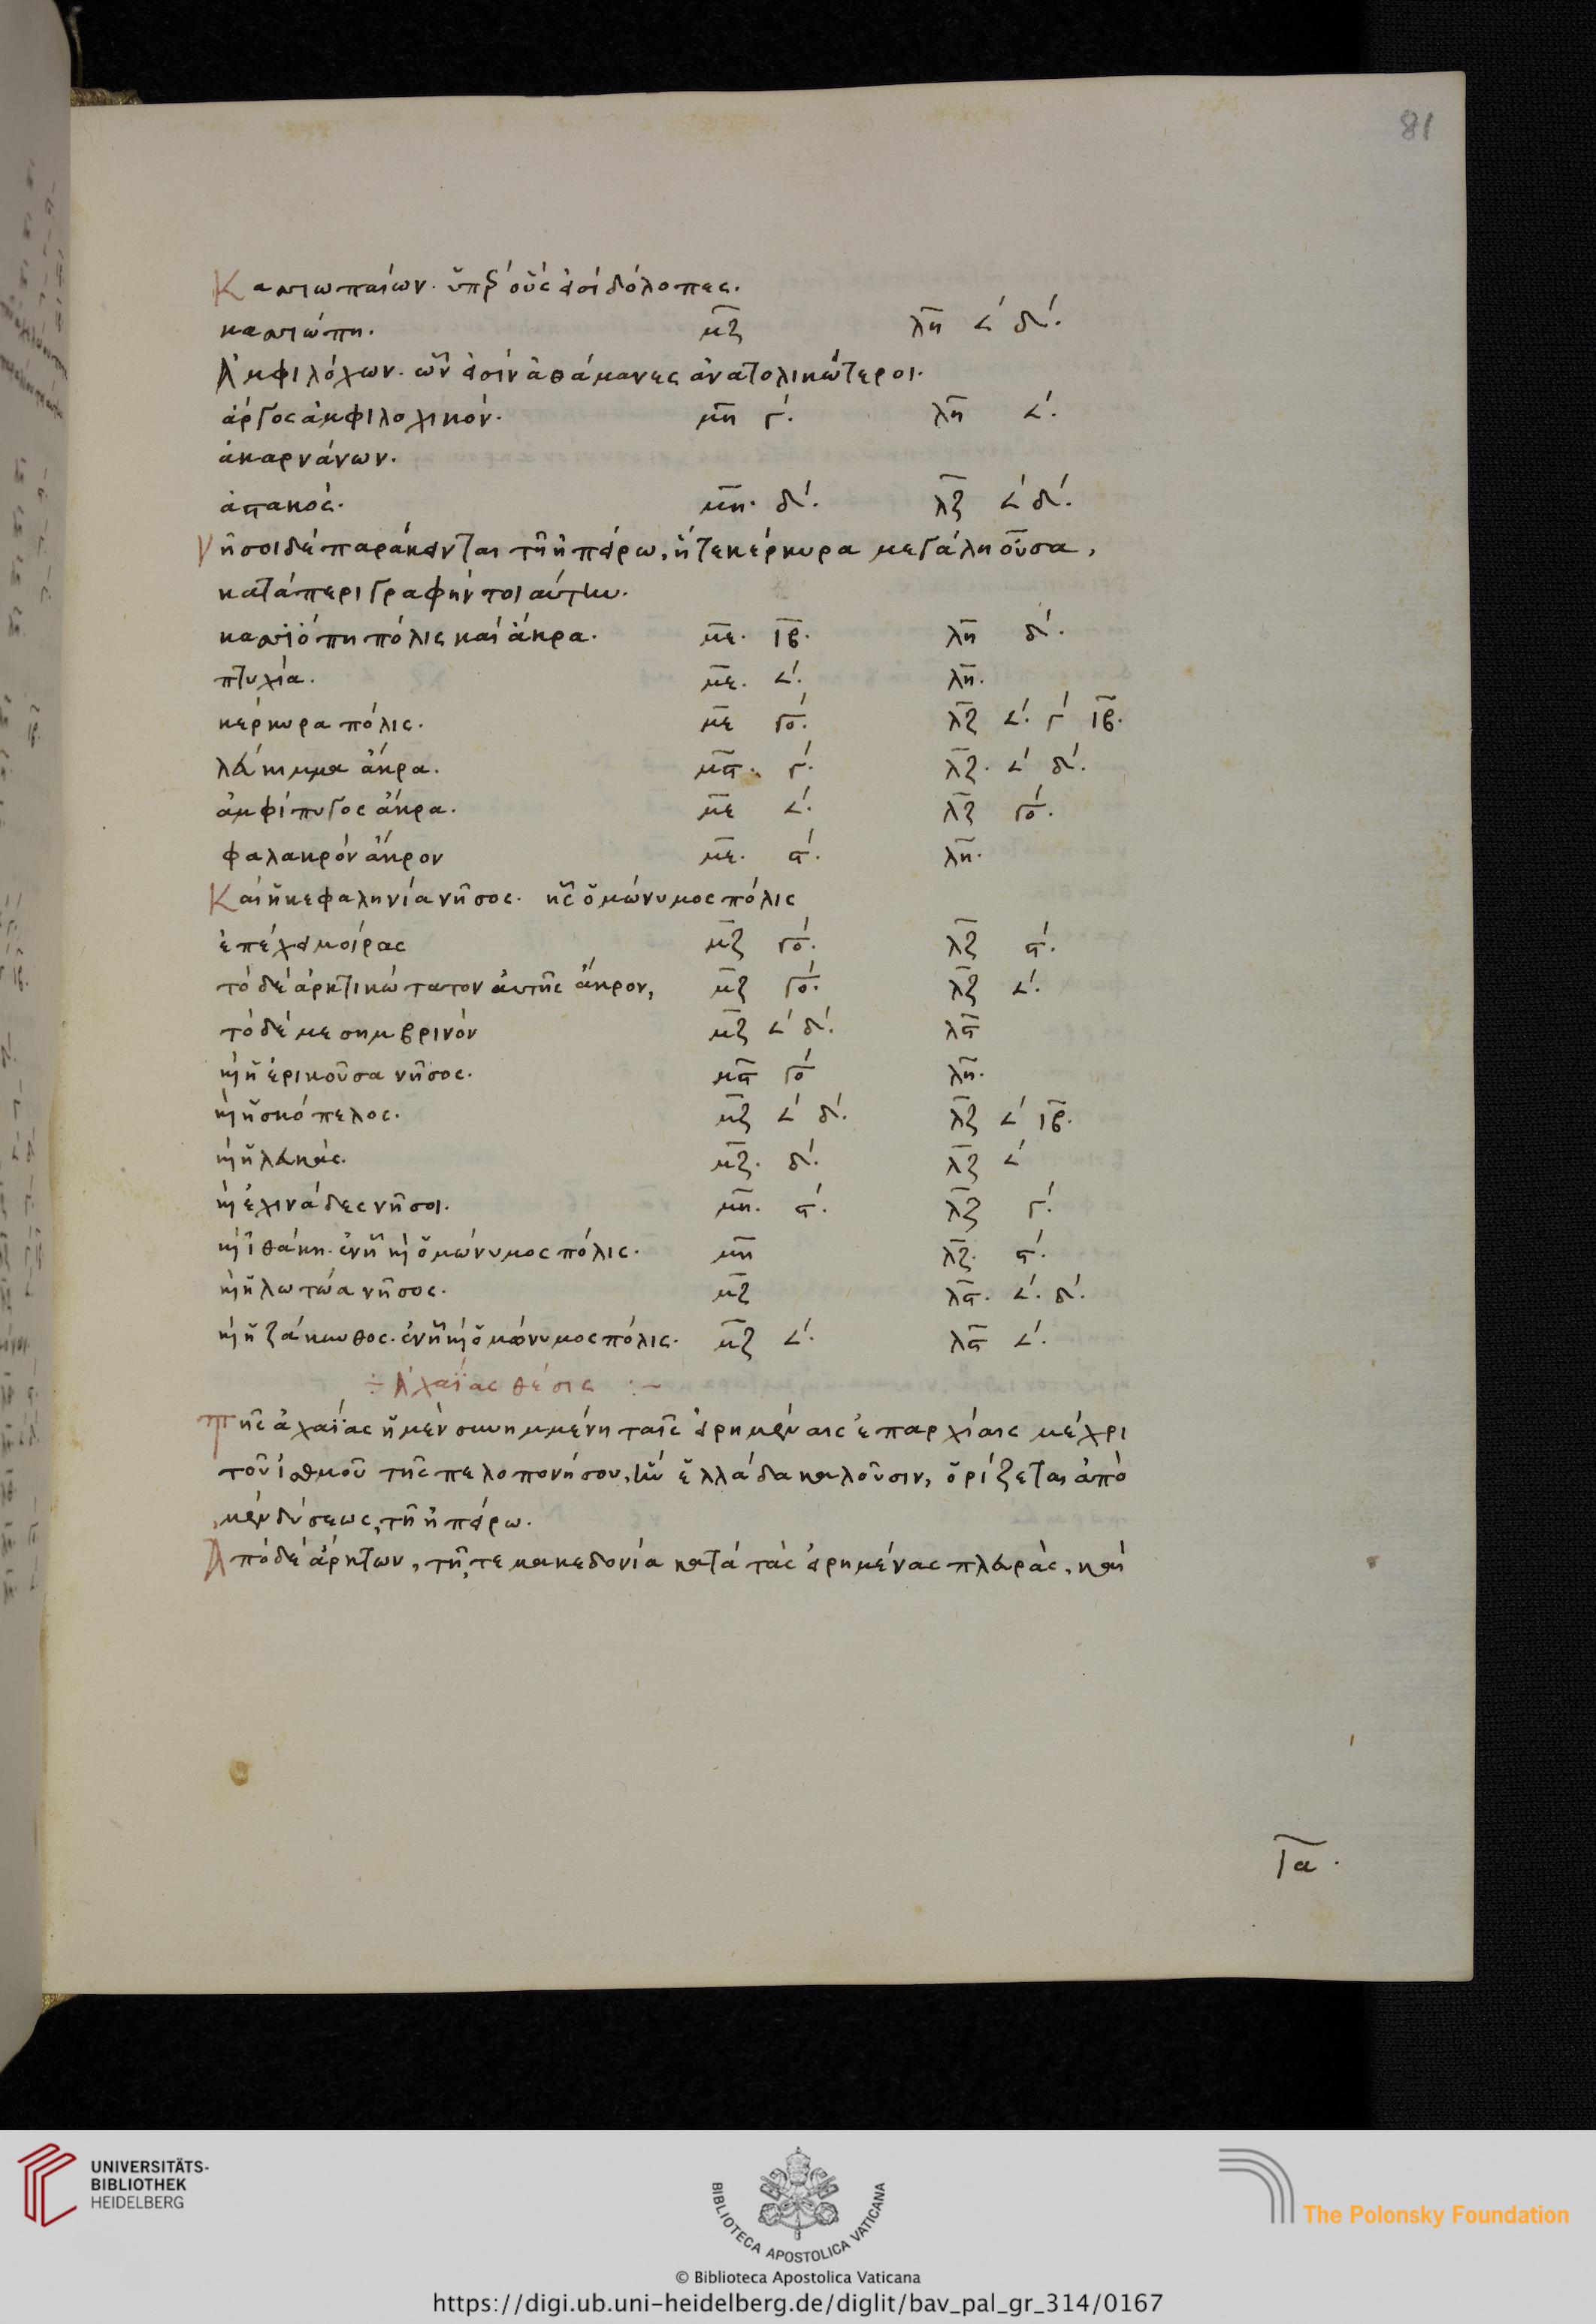 81
Κασσιωπαίων. ὑπὲρ οὕς εἰσὶ δόλοπες.
κασσιώπη. μζ λη 𐅵 δ´.
Ἀμφιλόχων. ὧν εἰσὶν ἀθάμανες ἀνατολικώτεροι.
ἄργος ἀμφιλοχικόν. μη γ´. λη 𐅵.
ἀκαρνάνων.
ἀστακός. μη. δ´. λζ 𐅵 δ´.
νῆσοι δὲ παράκεινται τῆ ἠπείρω, ἥτε κέρκυρα μεγάλη οὖσα,
κατὰ περιγραφὴν τοιαύτην.
κασσιόπη πόλις καὶ ἄκρα. με. ιβ. λη δ´.
πτυχία. με. 𐅵. λη.
κέρκυρα πόλις. με γο´. λζ 𐅵. γ´ ιβ.
λεύκιμμα ἄκρα. μϛ. γ´. λζ. 𐅵 δ´.
ἀμφίπυγος ἄκρα. με 𐅵. λζ γο´.
φαλακρὸν ἄκρον με. ϛ´. λη.
Καὶ ἡ κεφαληνία νῆσος. ἧς ὁμώνυμος πόλις
ἐπέχει μοίρας μζ γο´. λζ ϛ´.
τὸ δὲ ἀρκτικώτατον ἀυτῆς ἄκρον, μζ γο´. λζ 𐅵.
τὸ δὲ μεσημβρινόν μζ 𐅵 δ´. λϛ
κὴ ἡ ἐρικοῦσα νῆσος. μϛ γο´ λη.
κὴ ἡ σκόπελος. μζ 𐅵 δ´. λζ 𐅵 ιβ.
κὴ ἡ λευκάς. μζ. δ´. λζ 𐅵
κὴ ἐχινάδες νῆσοι. μη. ϛ´. λζ γ´.
κὴ ἰθάκη. ἐν ἧ κὴ ὁμώνυμος πόλις. μη λζ. ϛ´.
κὴ ἡ λωτώα νῆσος. μζ λϛ. 𐅵. δ´.
κὴ ἡ ζάκυνθος. ἐν ἧ κὴ ὁμώνυμος πόλις. μζ 𐅵. λϛ 𐅵.
÷ Ἀχαΐας θέσις :~
Τῆς ἀχαΐας ἡ μὲν συνημμένη ταῖς εἰρημέναις ἐπαρχίαις μέχρι
τοῦ ἰσθμοῦ τῆς πελοπονήσου, ἣν ἑλλάδα καλοῦσιν, ὁρίζεται ἀπὸ
μὲν δύσεως, τῆ ἠπείρω.
Ἀπὸ δὲ ἄρκτων, τῆ τε μακεδονία κατὰ τὰς εἰρημένας πλευρὰς, καὶ
ια.
UNIVERSITÄTS-
BIBLIOTHEK
HEIDELBERG
BIBLIOTECA APOSTOLICA VATICANA
The Polonsky Foundation
© Biblioteca Apostolica Vaticana
https://digi.ub.uni-heidelberg.de/diglit/bav_pal_gr_314/0167